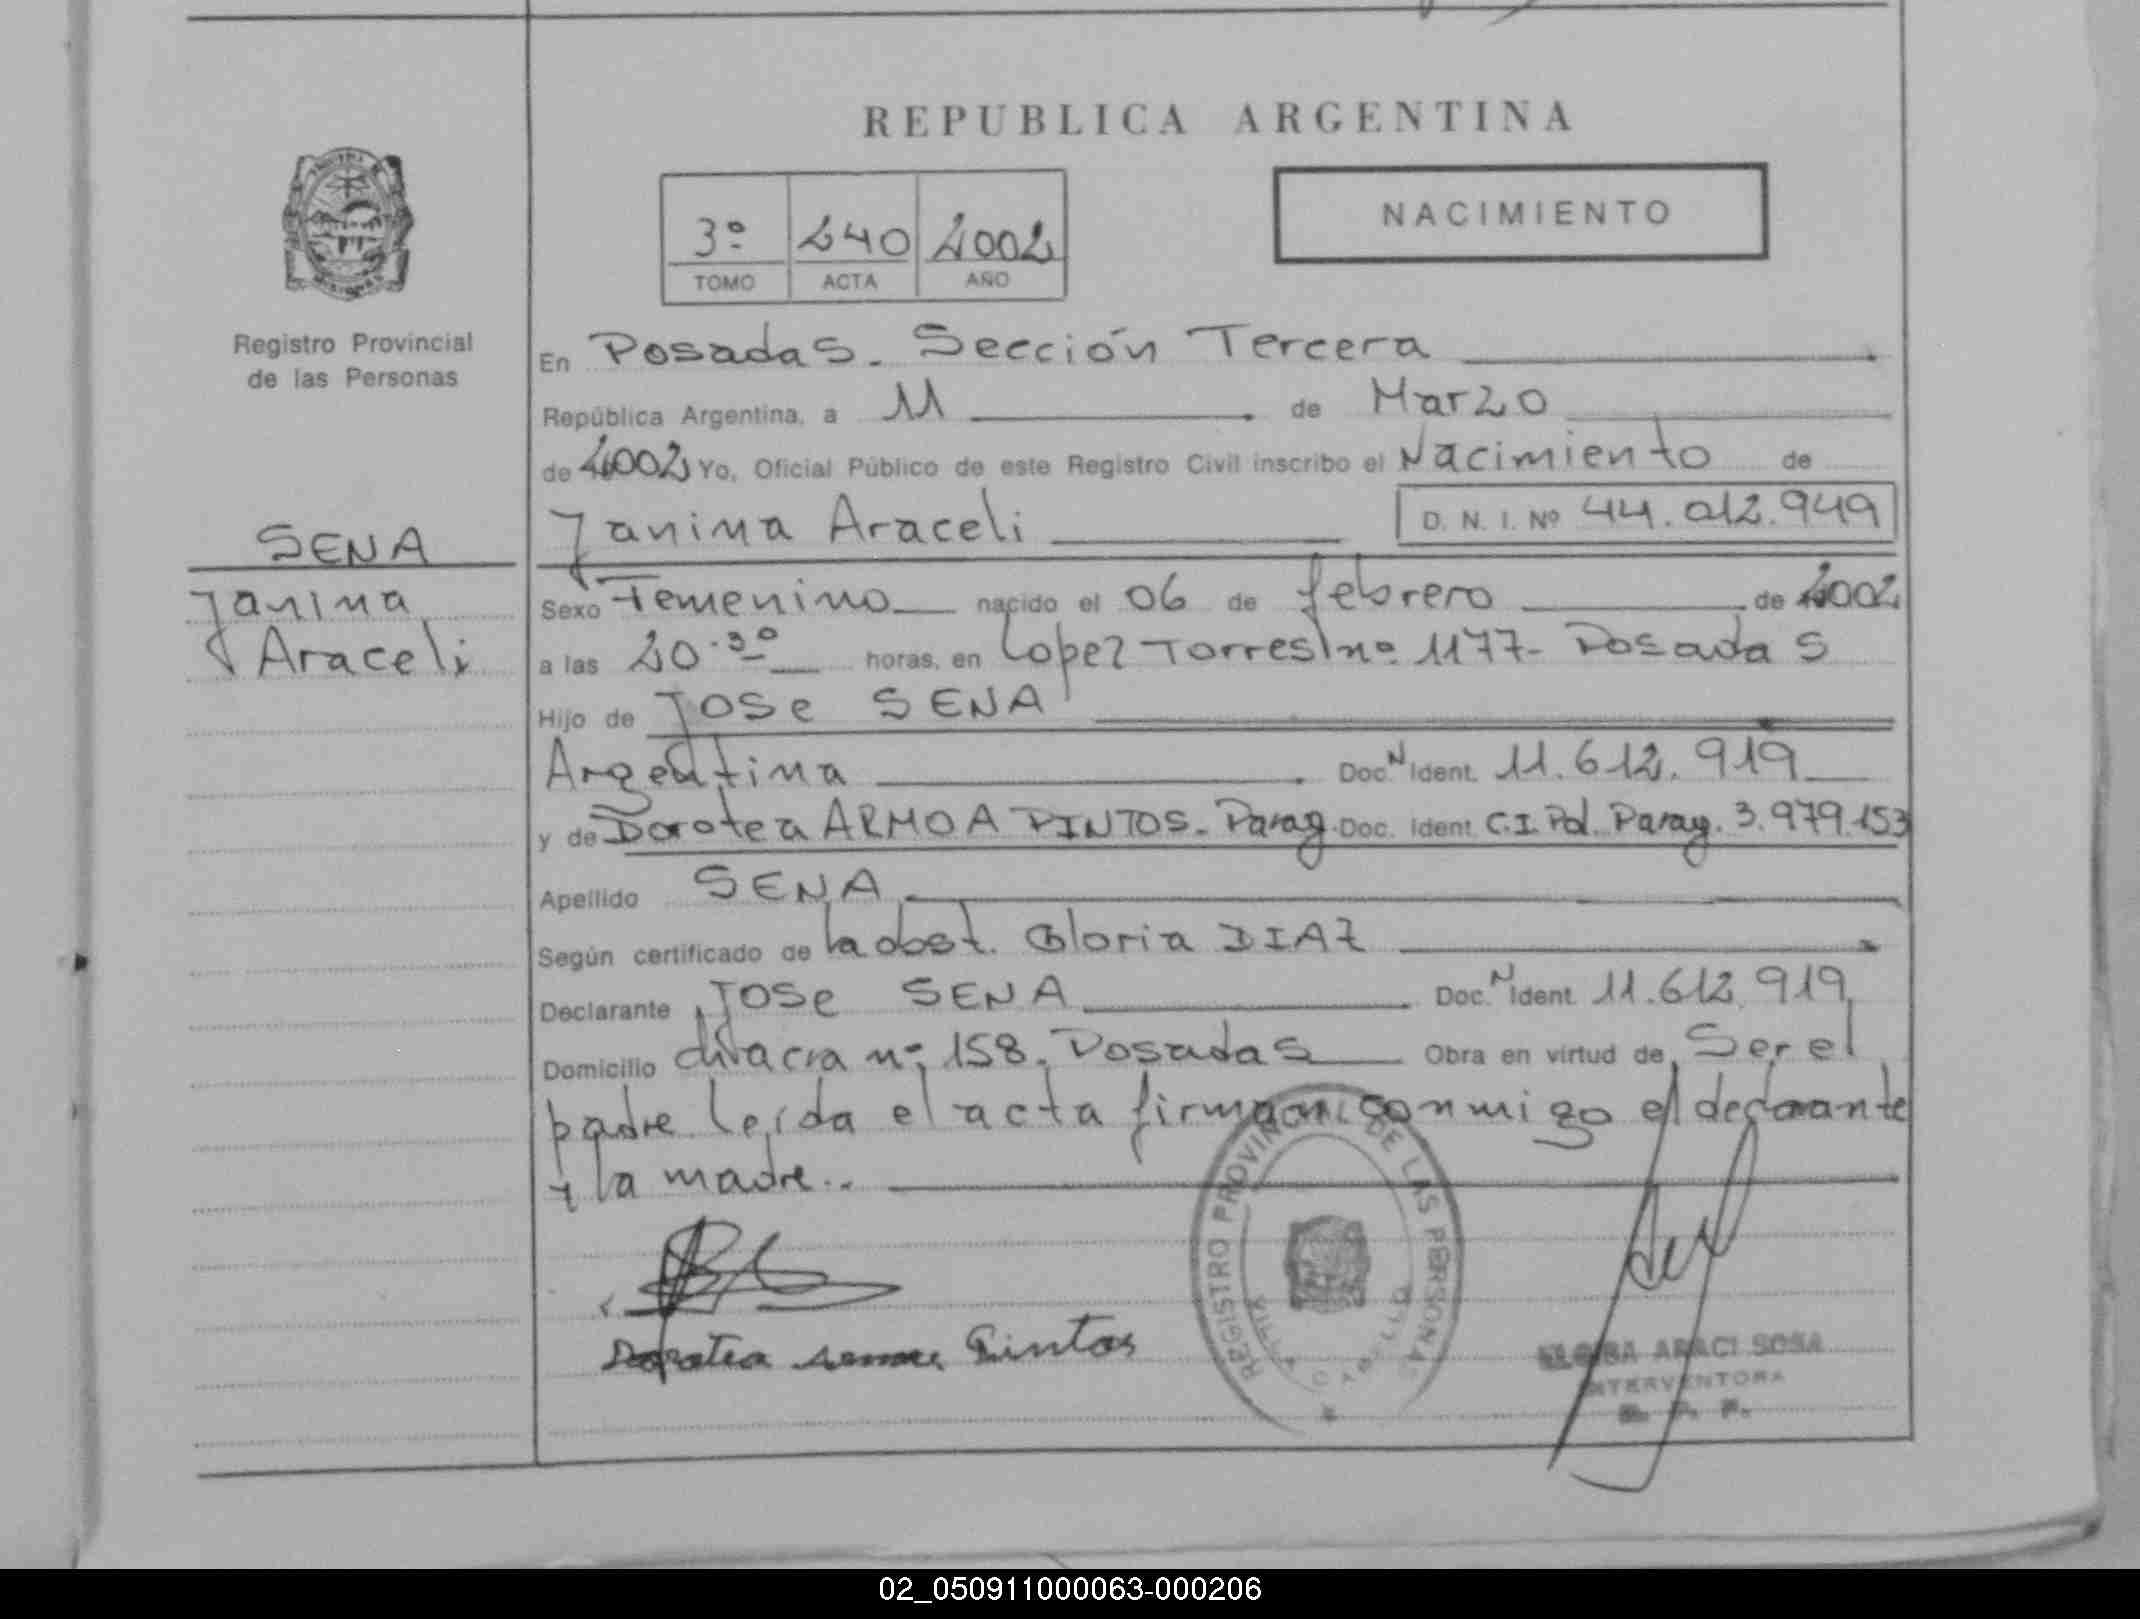 REPUBLICA ARGENTINA
NACIMIENTO
3º 240 2002
TOMO ACTA AÑO
Registro Provincial
de las Personas
SENA
Janina
Araceli
En Posadas. Sección Tercera
República Argentina, a 11 de Marzo
de 2002 Yo, Oficial Público de este Registro Civil inscribo el Nacimiento de
Janina Araceli D. N. I. Nº 44.012.949
Sexo Femenino nacido el 06 de febrero de 2002
a las 20.30 horas, en Lopez Torres nº 1177- Posadas
Hijo de Jose SENA
Argentina Doc. N Ident. 11.612.919
y de Dorotea ARMOA PINTOS. Parag. Doc. Ident. C.I. Pol. Parag. 3.979.153
Apellido SENA
Según certificado de la obst. Gloria DIAZ
Declarante Jose SENA Doc. N Ident. 11.612.919
Domicilio chacra nº 158. Posadas Obra en virtud de Ser el
padre Leída el acta firman conmigo el declarante
y la madre..
Dorotea Pintos
REGISTRO PROVINCIAL DE LAS PERSONAS
ARACI SOSA
INTERVENTORA
02_050911000063-000206